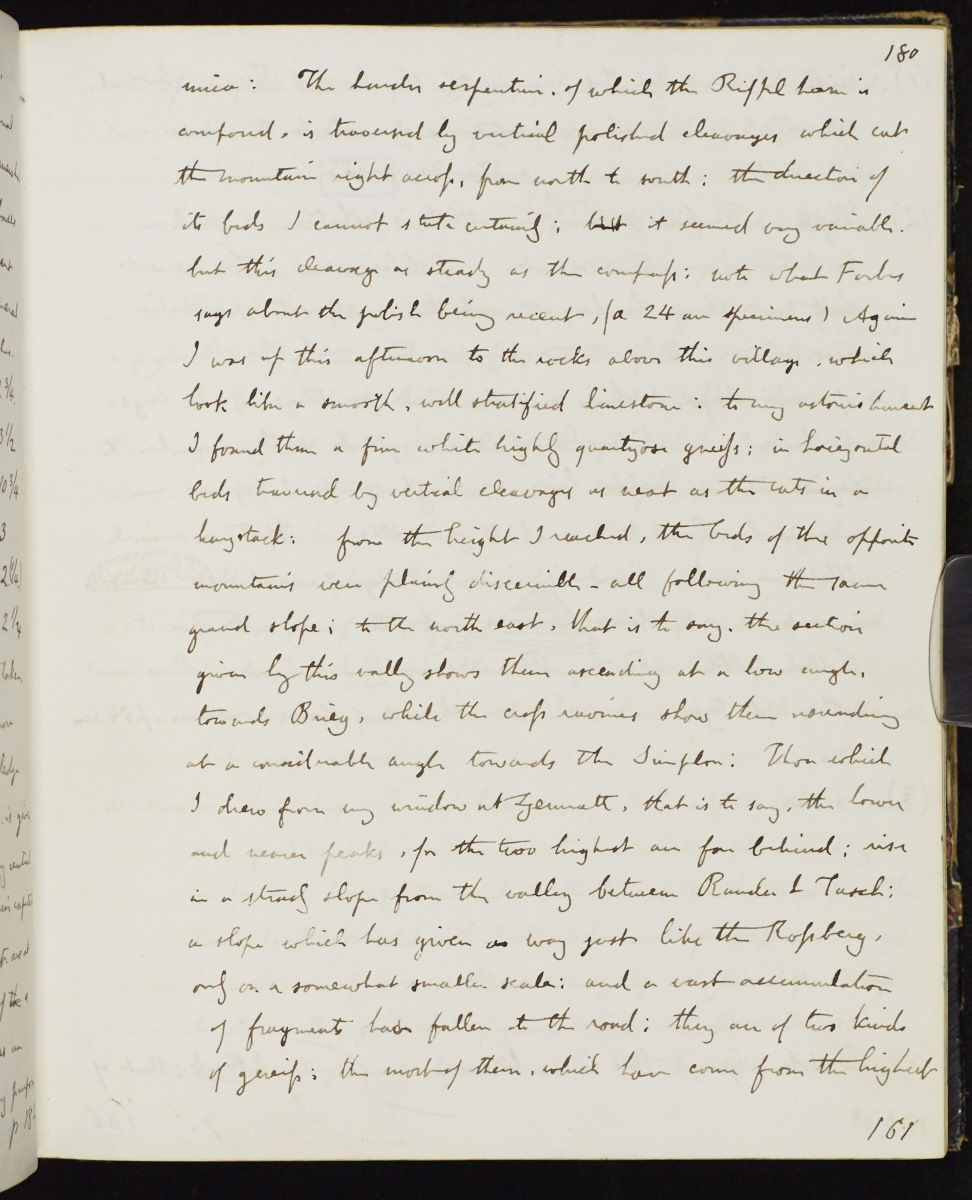 180
mica: The harder serpentine, of which the Riffel horn is
composed, is traversed by vertical polished cleavages which cut
the mountain right across, from north to south: the direction of
its beds I cannot state certainly; but it seemed very variable.
but this cleavage as steady as the compass: note what Forbes
says about the polish being recent, (a 24 are specimens) Again
I was up this afternoon to the rocks above this village, which
look like a smooth, well stratified limestone: to my astonishment
I found them a fine white highly quartzose gneiss; in horizontal
beds traversed by vertical cleavages as neat as the cuts in a
haystack: from the height I reached, the beds of the opposite
mountains were plainly discernible - all following the same
grand slope; to the north east, that is to say, the section
given by this vally shows them ascending at a low angle,
towards Brieg, while the cross ravines show them ascending
at a considerable angle towards the Simplon: Those which
I drew from my window at Zermatt, that is to say, the lower
and nearer peaks, for the two highest are far behind; rise
in a steady slope from the valley between Randa & Tasch:
a slope which has given way just like the Rossberg,
only on a somewhat smaller scale: and a vast accumulation
of fragments have fallen to the road; they are of two kinds
of gneiss: the most of them, which have come from the highest
161
3/4
3 1/2
10 3/4
3
2 1/4
taken